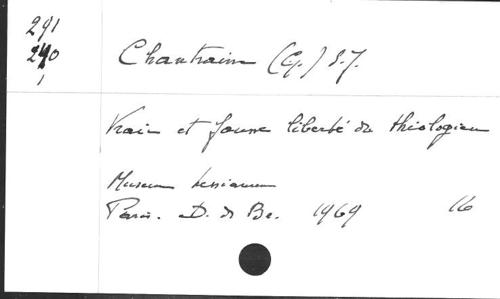 291
240
1
Chantraine (G.) S.J.
Vraie et fausse liberté du théologien
Museum Lessianum
Paris. D. de Br. 1969 16